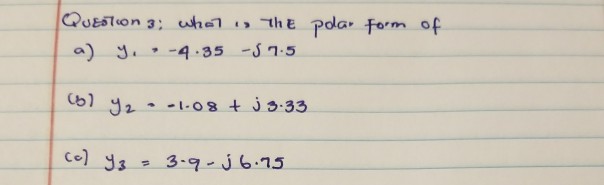 Question 3: what is The polar form of
a) y1 = -4.35 - j7.5
(b) y2 = -1.08 + j3.33
(c) y3 = 3.9 - j6.75